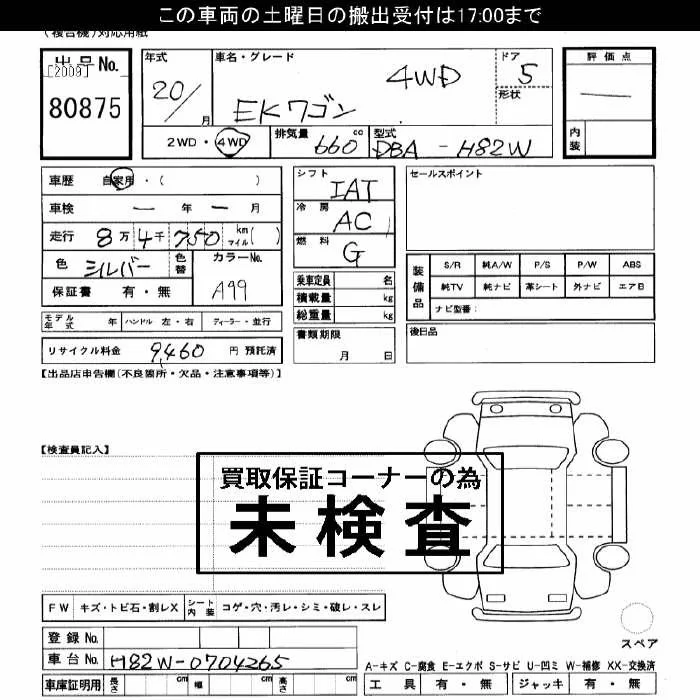 この車両の土曜日の搬出受付は17:00まで
(複合機)対応用紙
出品No. [2009]
80875
年式 20/ 月
車名・グレード 4WD
EKワゴン
ドア 5
形状
評価点 —
内装
2WD・4WD 排気量 660 cc 型式 DBA - H82W
車歴 自家用・( )
車検 — 年 — 月
走行 8万4千750 km マイル( )
色 シルバー 色替 カラーNo. A99
保証書 有・無
モデル年式 年 ハンドル 左・右 ディーラー・並行
リサイクル料金 9,460 円 預託済
シフト IAT
冷房 AC
燃料 G
乗車定員 名
積載量 kg
総重量 kg
書類期限
月 日
セールスポイント
装備品 S/R 純A/W P/S P/W ABS
純TV 純ナビ 革シート 外ナビ エアB
ナビ型番:
後日品
【出品店申告欄(不良箇所・欠品・注意事項等)】
【検査員記入】
買取保証コーナーの為
未検査
FW キズ・トビ石・割レX シート内装 コゲ・穴・汚レ・シミ・破レ・スレ
登録No.
車台No. H82W-0704265
車庫証明用 長さ cm 幅 cm 高さ cm
スペア
A-キズ C-腐食 E-エクボ S-サビ U-凹ミ W-補修 XX-交換済
工具 有・無 ジャッキ 有・無